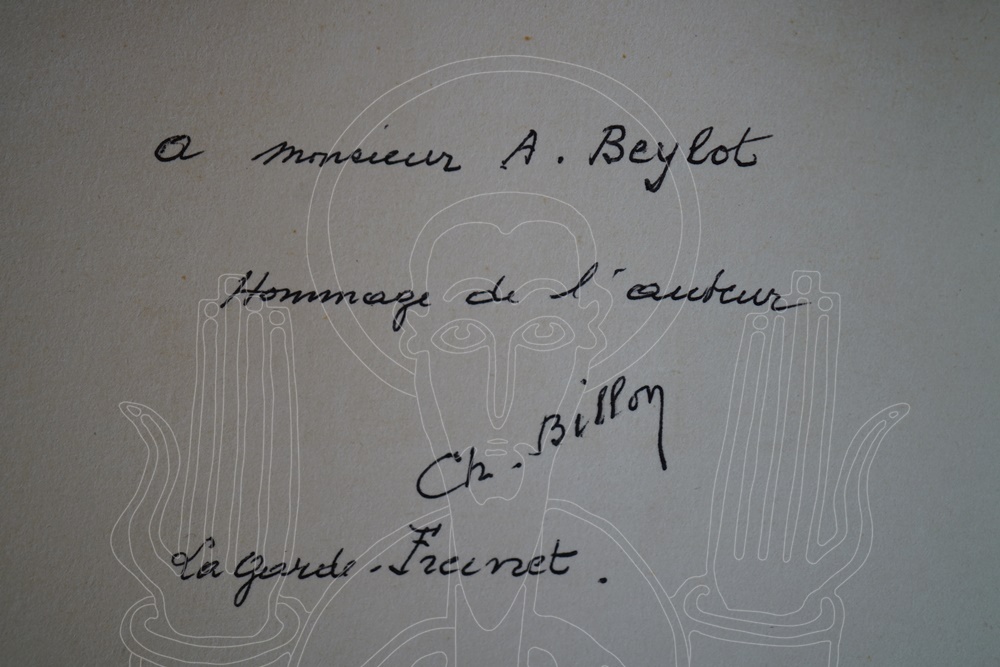 a monsieur A. Beylot
Hommage de l'auteur
Ch. Billon
La Garde-Freinet.